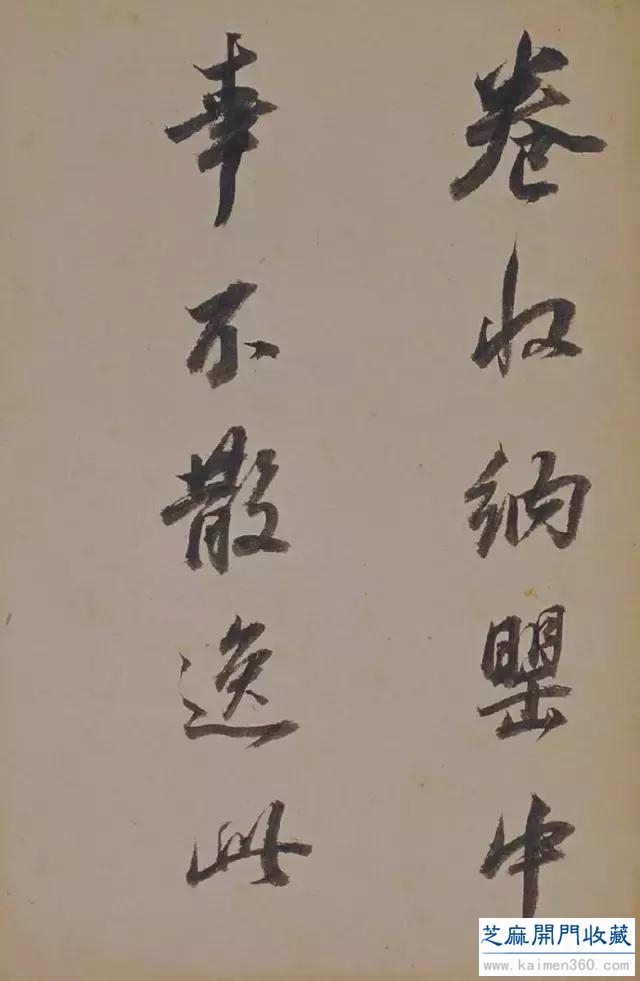 卷收納罌中
幸不散逸此
芝麻開門收藏
www.kaimen360.com